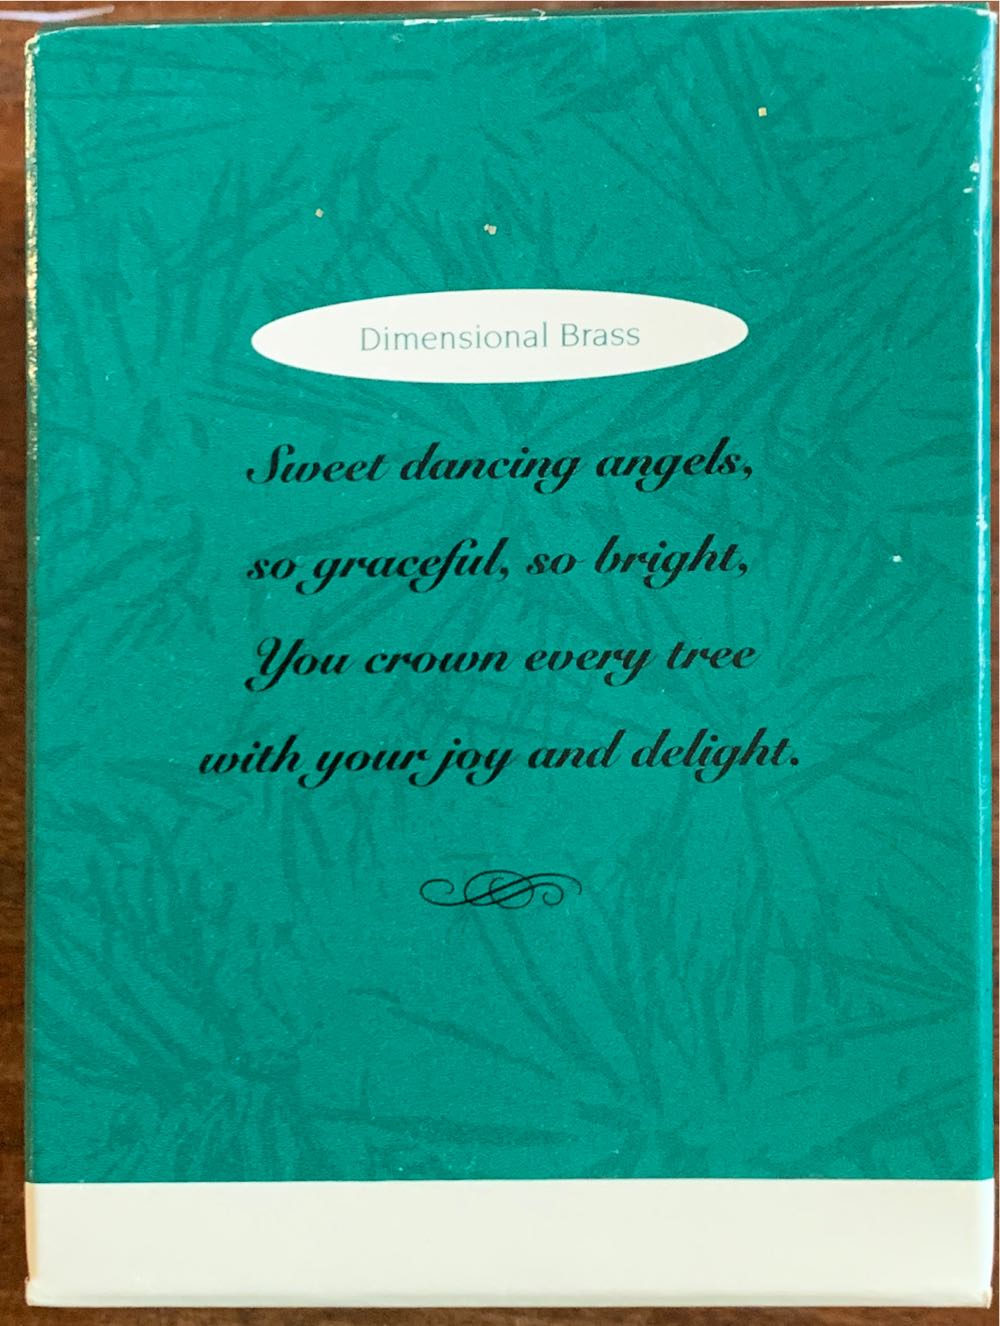 Dimensional Brass
Sweet dancing angels,
so graceful, so bright,
You crown every tree
with your joy and delight.